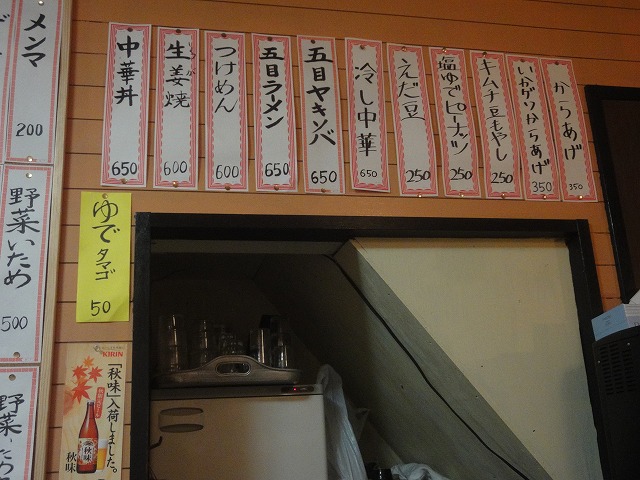 メンマ
200
野菜いため
500
野菜
中華丼
650
生姜焼
600
つけめん
600
五目ラーメン
650
五目ヤキソバ
650
冷し中華
650
えだ豆
250
塩ゆでピーナッツ
250
キムチ豆もやし
250
いかゲソからあげ
350
からあげ
350
ゆでタマゴ
50
KIRIN
「秋味」入荷しました。
秋味
秋味